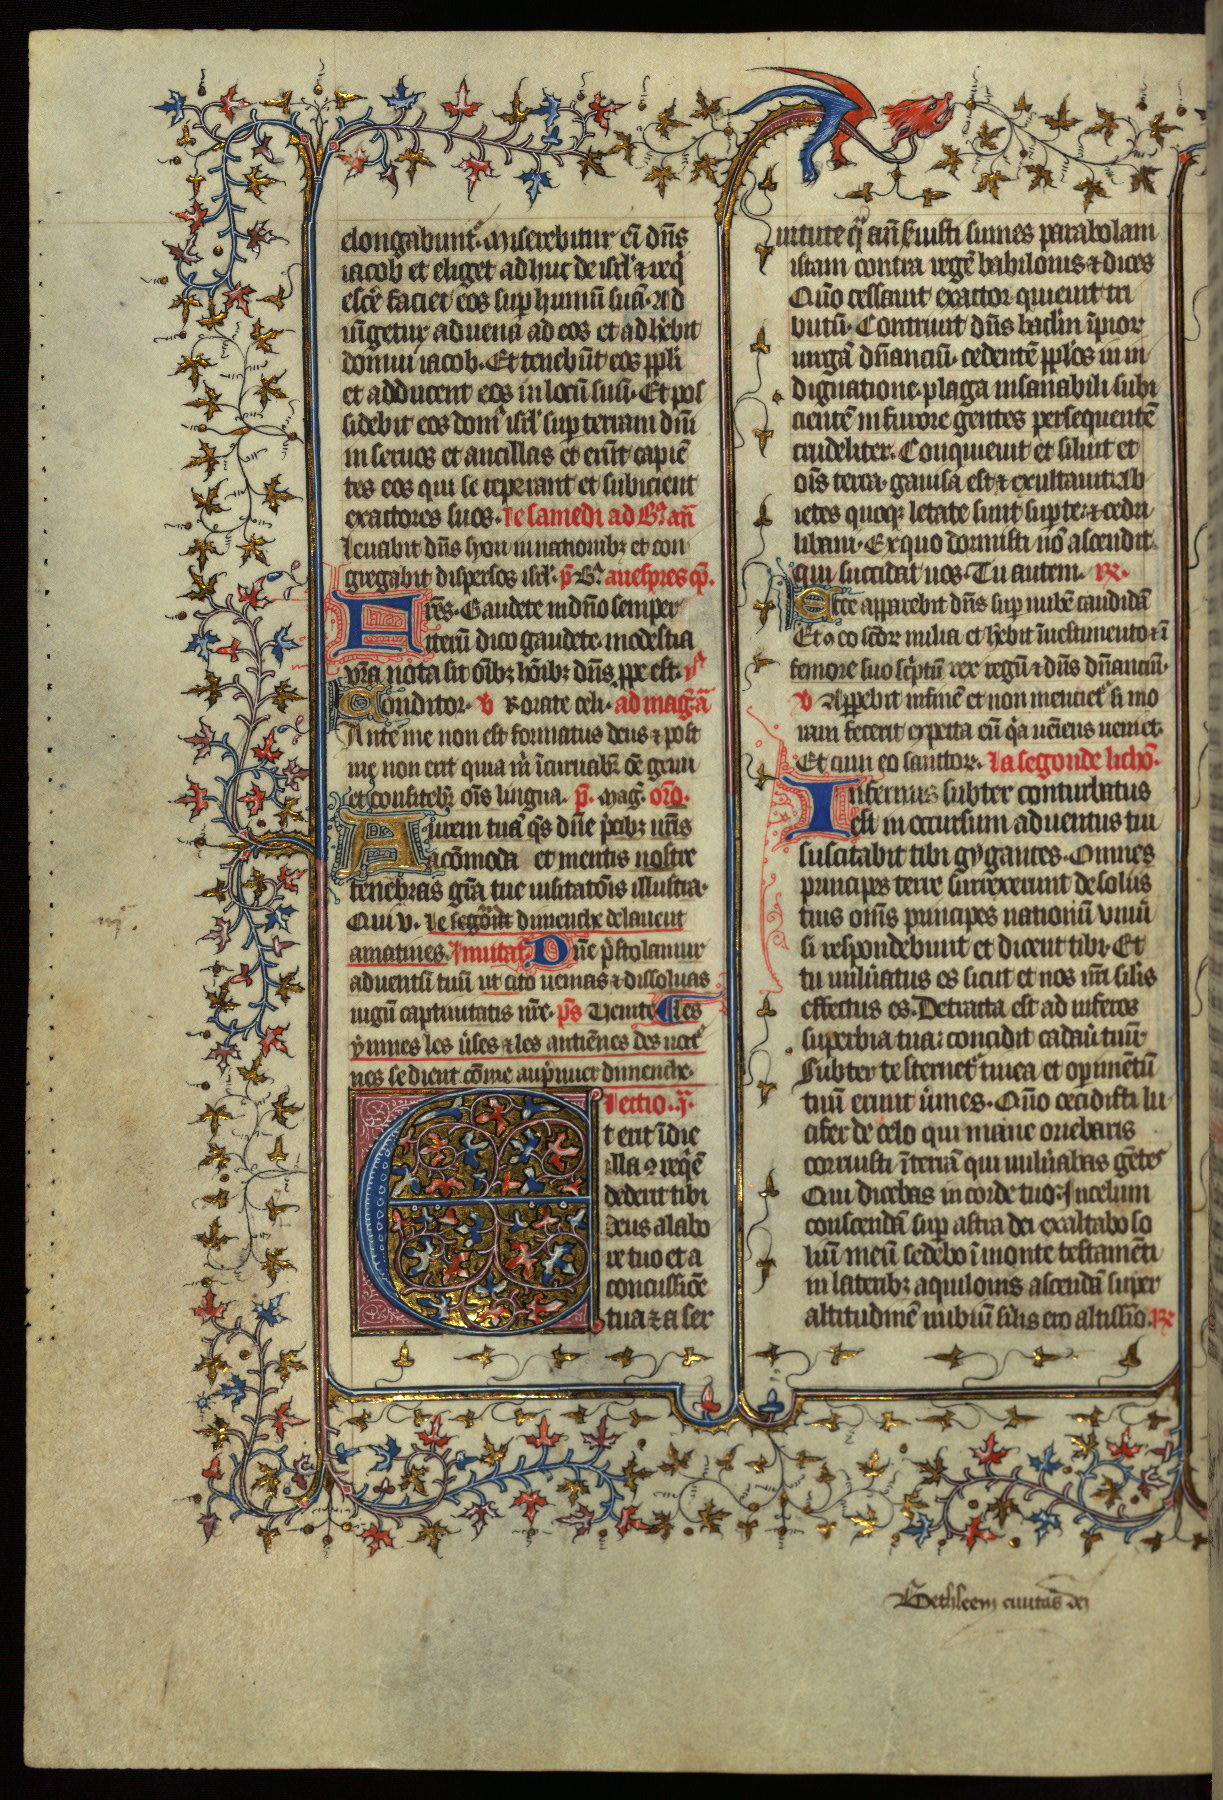 elongabunt᷑. Miserebitur eī dn̄s
iacob et eliget adhuc de isrl̄ ⁊ req̄
escē faciet eos sup humū suā. Ad
iūgetur aduena ad eos et adhēbit
domui iacob. Et tenebūt eos ppl̄i
et adducent eos in locū suū. Et pos
sidebit eos domꝰ isrl̄ sup terram dn̄i
in seruos et ancillas et erūt capiē
tes eos qui se ceperant et subicient
exactores suos. Le samedi ad Bn̄ an̄
Leuabit dn̄s signū in nationibꝫ et con
gregabit dispersos isrl̄. p̄. Bn̄. a uespres cp̄.
Fres. Gaudete in dn̄o semper
iterū dico gaudete. modestia
vr̄a nota sit oībꝫ hōibꝫ dn̄s ppe est. yᵃ
Conditor. v Rorate celi. ad maḡᵃ aᵃ
Ante me non est formatus deus ⁊ post
me non erit quia m̄ īcuruabr̄ oē genu
et confitebr̄ ois lingua. p̄. maḡ. orō.
Aurem tuā q̄s dn̄e p̄cibꝫ nr̄is
acōmoda et mentis nostre
tenebras gr̄a tue uisitatōis illustra.
Qui v. Le segont dimenche delauent
a matines. Inuitat. Dn̄e p̄stolamur
aduentū tuū ut cito uenias ⁊ dissoluas
iugū captiuitatis nr̄e. ps̄ Uenite. Les
ymnes les ūses ⁊ les antiēnes des noct᷑
nes se dient cōme au p̄mier dimenche.
Lectio. jᵃ.
Et erit ī die
illa ⁊ reqīe
dederit tibi
deus a labo
re tuo et a
concussiōe
tua ⁊ a ser
uitute q̄ an̄ ſ̄uisti sumes parabolam
istam contra regē babilonis ⁊ dices
Quō cessauit exactor quieuit tri
butū. Contriuit dn̄s baclm̄ īpior
uirgā dn̄anciū. cedentē pp̄los in in
dignatione. plaga insanabili subi
cientē in furore gentes persequentē
crudeliter. Conquieuit et siluit et
ois̄ terra. gauisa est ⁊ exultauit. Ab
ietes quoqꝫ letate sunt sup te. ⁊ cedri
libani. Ex quo dormisti nō ascendit
qui succidat nos. Tu autem. ℟.
Ecce apparebit dn̄s sup nubē candidā
Et cū eo scōr milia et hēbit ī uestimento ⁊ ī
femore suo sc̄ptū rex regū ⁊ dn̄s dn̄anciū.
v Apparebit in finē et non mentiet᷑ si mo
ram fecerit expecta eū qᵃ ueniens ueniet.
Et cum eo sanctor. La segonde lichō.
Infernus subter conturbatus
est in occursum aduentus tui
suscitabit tibi gygantes. Omnes
principes terre surrexerunt de soliis
suis om̄s principes nationū vniū
si respondebunt et dicent tibi. Et
tu uuln̄atus es sicut et nos nr̄i silis̄
effectus es. Detracta est ad inferos
superbia tua: concidit cadau᷑ tuū.
Subter te sternet᷑ tinea et opimētū
tuū erunt ūmes. Quō cecidisti lu
cifer de celo qui mane oriebaris
corruisti ī terrā qui uuln̄abas gētes
Qui dicebas in corde tuo: In celum
conscendā sup astra dei exaltabo so
liū meū sedebo ī monte testamēti
in lateribꝫ aquilonis ascendā super
altitudinē nubiū silis̄ ero altissīo. ℟
Bethleem ciuitas dei